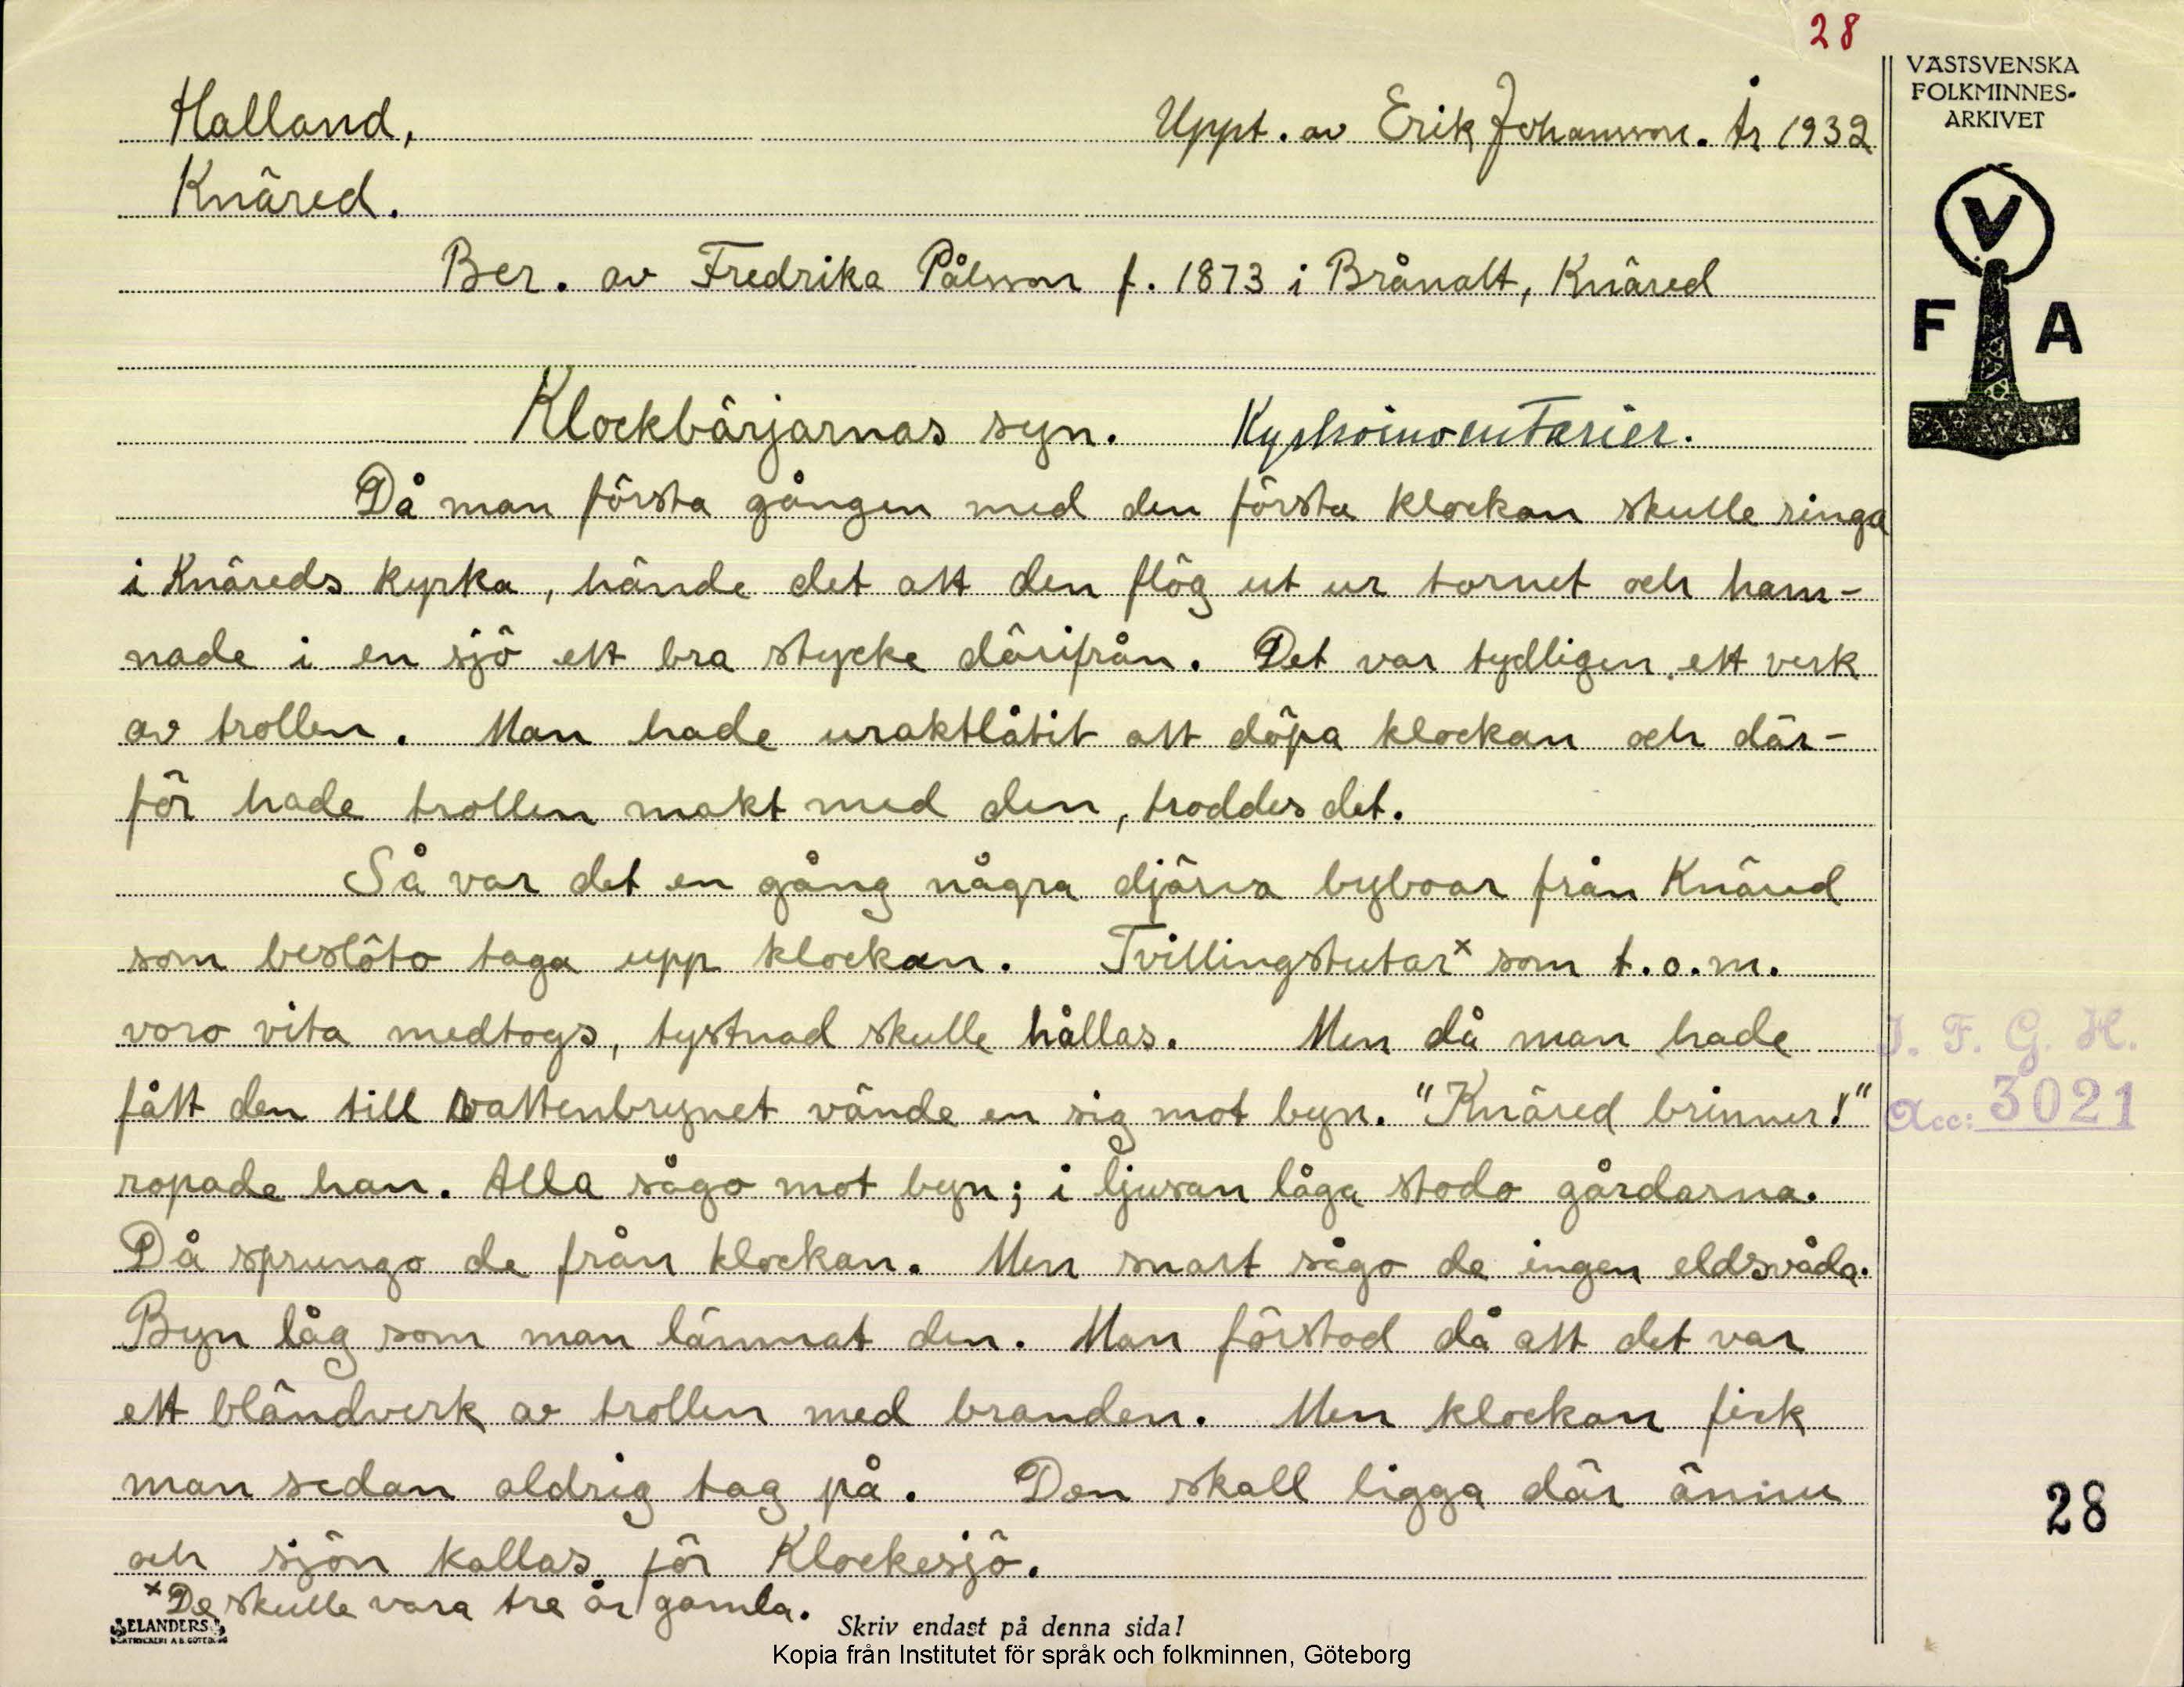 28
VÄSTSVENSKA
FOLKMINNES-
ARKIVET
V
F A
Halland, Uppt. av Erik Johansson. År 1932
Knäred.
Ber. av Fredrika Pålsson f. 1873 i Brånalt, Knäred
Klockbärjarnas syn. Kyrkoinventarier.
Då man första gången med den första klockan skulle ringa
i Knäreds kyrka, hände det att den flög ut ur tornet och ham-
nade i en sjö ett bra stycke därifrån. Det var tydligen ett verk
av trollen. Man hade uraktlåtit att döpa klockan och där-
för hade trollen makt med den, troddes det.
Så var det en gång några djärva byboar från Knäred
som beslöto taga upp klockan. Tvillingstutar x som t.o.m.
voro vita medtogs, tystnad skulle hållas. Men då man hade
fått den till vattenbrynet vände en sig mot byn. "Knäred brinner!"
ropade han. Alla sågo mot byn; i ljusan låga stodo gårdarna.
Då sprungo de från klockan. Men snart sågo de ingen eldsvåda.
Byn låg som man lämnat den. Man förstod då att det var
ett bländverk av trollen med branden. Men klockan fick
man sedan aldrig tag på. Den skall ligga där ännu
och sjön kallas för Klockesjö.
x De skulle vara tre år gamla.
I. F. G. H.
Acc: 3021
28
ELANDERS
Skriv endast på denna sida!
Kopia från Institutet för språk och folkminnen, Göteborg